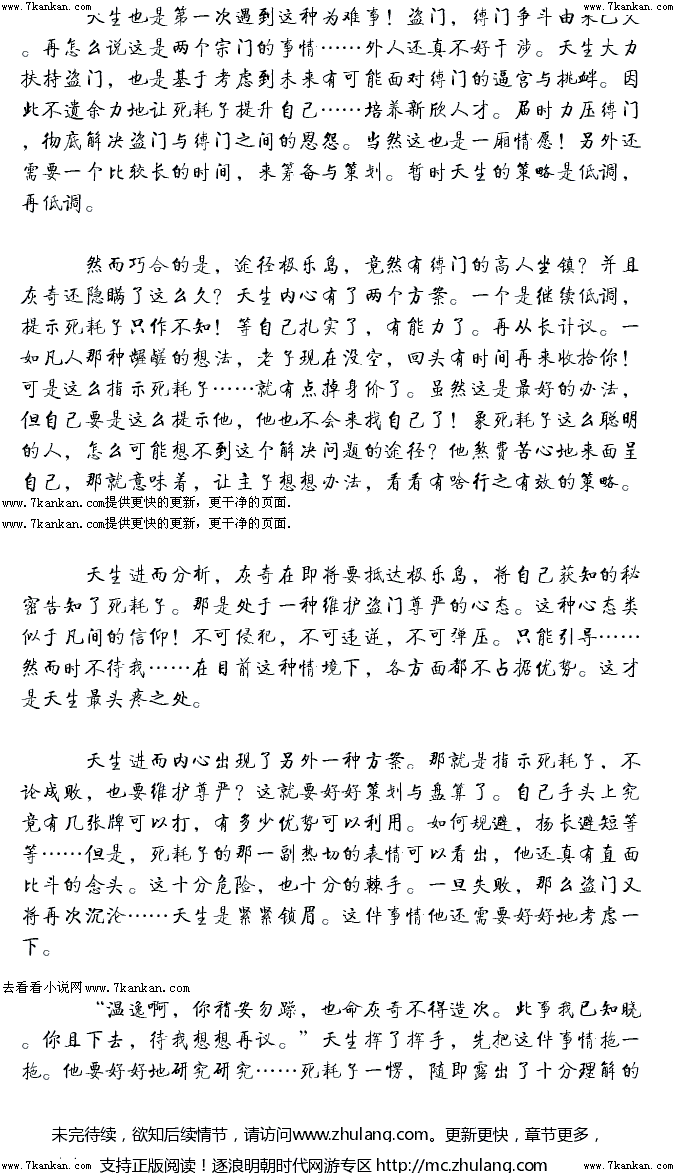 www.7kankan.com www.7kankan.com
天生也是第一次遇到这种为难事！盗门，缚门争斗由来已久
。再怎么说这是两个宗门的事情……外人还真不好干涉。天生大力
扶持盗门，也是基于考虑到未来有可能面对缚门的逼宫与挑衅。因
此不遗余力地让死耗子提升自己……培养新欣人才。届时力压缚门
，彻底解决盗门与缚门之间的恩怨。当然这也是一厢情愿！另外还
需要一个比较长的时间，来筹备与策划。暂时天生的策略是低调，
再低调。
然而巧合的是，途径极乐岛，竟然有缚门的高人坐镇？并且
灰奇还隐瞒了这么久？天生内心有了两个方案。一个是继续低调，
提示死耗子只作不知！等自己扎实了，有能力了。再从长计议。一
如凡人那种龌龊的想法，老子现在没空，回头有时间再来收拾你！
可是这么指示死耗子……就有点掉身价了。虽然这是最好的办法，
但自己要是这么提示他，他也不会来找自己了！象死耗子这么聪明
的人，怎么可能想不到这个解决问题的途径？他煞费苦心地来面呈
自己，那就意味着，让主子想想办法，看看有啥行之有效的策略。
www.7kankan.com提供更快的更新，更干净的页面.
www.7kankan.com提供更快的更新，更干净的页面.
天生进而分析，灰奇在即将要抵达极乐岛，将自己获知的秘
密告知了死耗子。那是处于一种维护盗门尊严的心态。这种心态类
似于凡间的信仰！不可侵犯，不可违逆，不可弹压。只能引导……
然而时不待我……在目前这种情境下，各方面都不占据优势。这才
是天生最头疼之处。
天生进而内心出现了另外一种方案。那就是指示死耗子，不
论成败，也要维护尊严？这就要好好策划与盘算了。自己手头上究
竟有几张牌可以打，有多少优势可以利用。如何规避，扬长避短等
等……但是，死耗子的那一副热切的表情可以看出，他还真有直面
比斗的念头。这十分危险，也十分的棘手。一旦失败，那么盗门又
将再次沉沦……天生是紧紧锁眉。这件事情他还需要好好地考虑一
下。
去看看小说网www.7kankan.com
“温逸啊，你稍安勿躁，也命灰奇不得造次。此事我已知晓
。你且下去，待我想想再议。”天生挥了挥手，先把这件事情拖一
拖。他要好好地研究研究……死耗子一愣，随即露出了十分理解的
未完待续，欲知后续情节，请访问www.zhulang.com。更新更快，章节更多，
www.7kankan.com 支持正版阅读！逐浪明朝时代网游专区 http://mc.zhulang.com www.7kankan.com